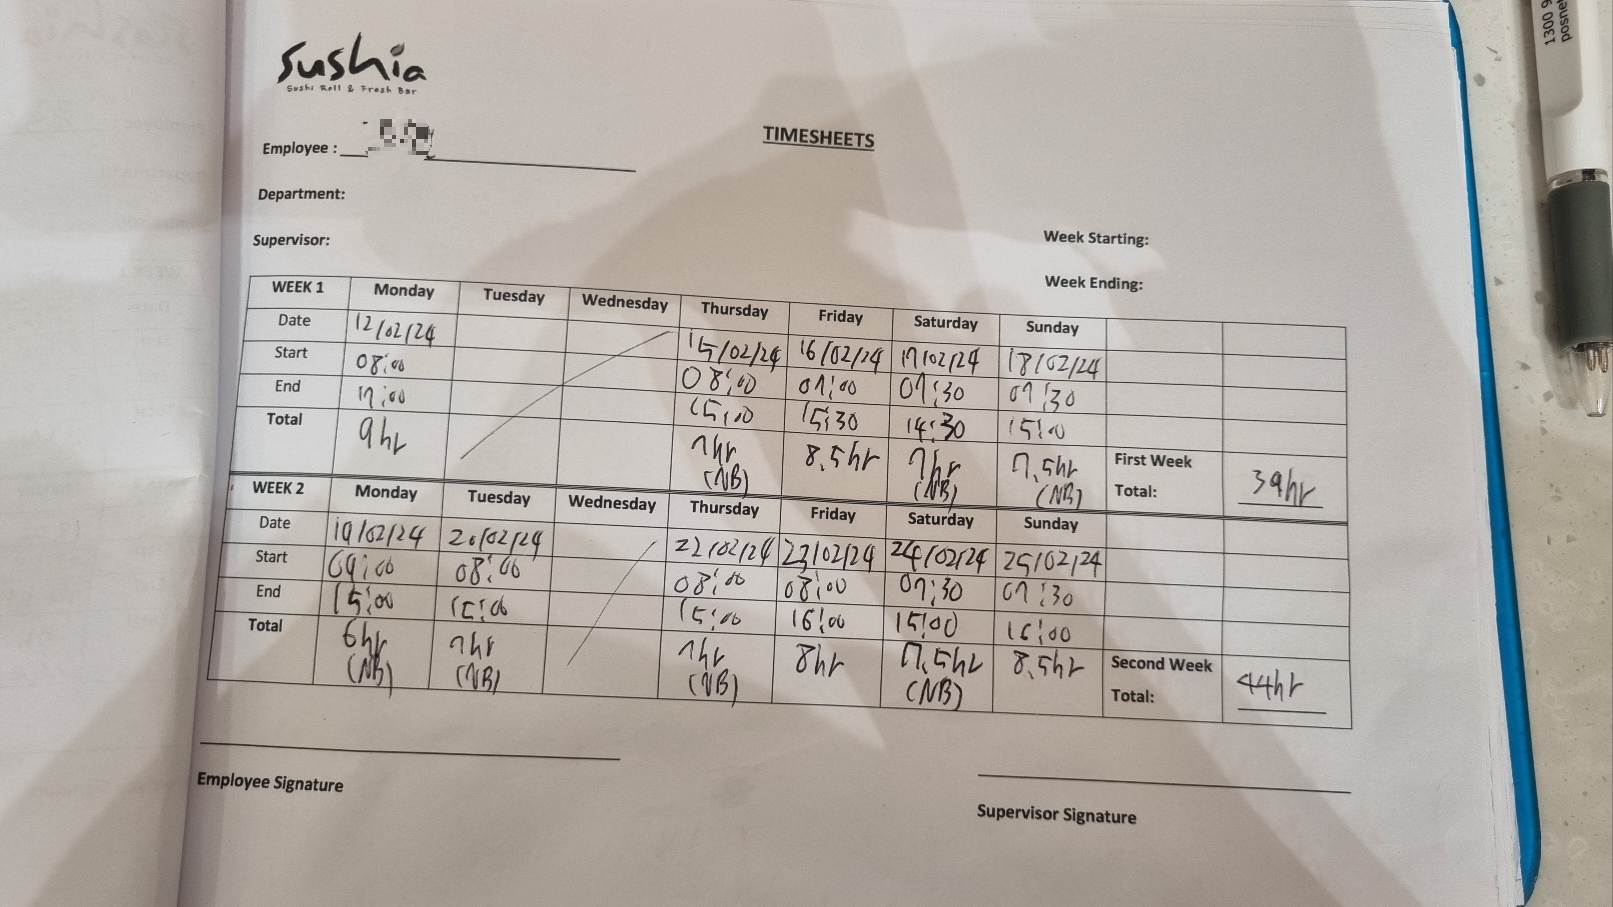 Sushia
Sushi Roll & Fresh Bar
TIMESHEETS
Employee :
Department:
Supervisor:
Week Starting:
Week Ending:
WEEK 1 Monday Tuesday Wednesday Thursday Friday Saturday Sunday
Date 12/02/24 15/02/24 16/02/24 17/02/24 18/02/24
Start 08:00 08:00 07:00 07:30 07:30
End 17:00 15:00 15:30 14:30 15:00
Total 9hr 7hr (NB) 8.5hr 7hr (NB) 7.5hr (NB) First Week Total: 39hr
WEEK 2 Monday Tuesday Wednesday Thursday Friday Saturday Sunday
Date 19/02/24 20/02/24 22/02/24 23/02/24 24/02/24 25/02/24
Start 09:00 08:00 08:00 08:00 07:30 07:30
End 15:00 15:00 15:00 16:00 15:00 16:00
Total 6hr (NB) 7hr (NB) 7hr (NB) 8hr 7.5hr (NB) 8.5hr Second Week Total: 44hr
Employee Signature
Supervisor Signature
1300 9